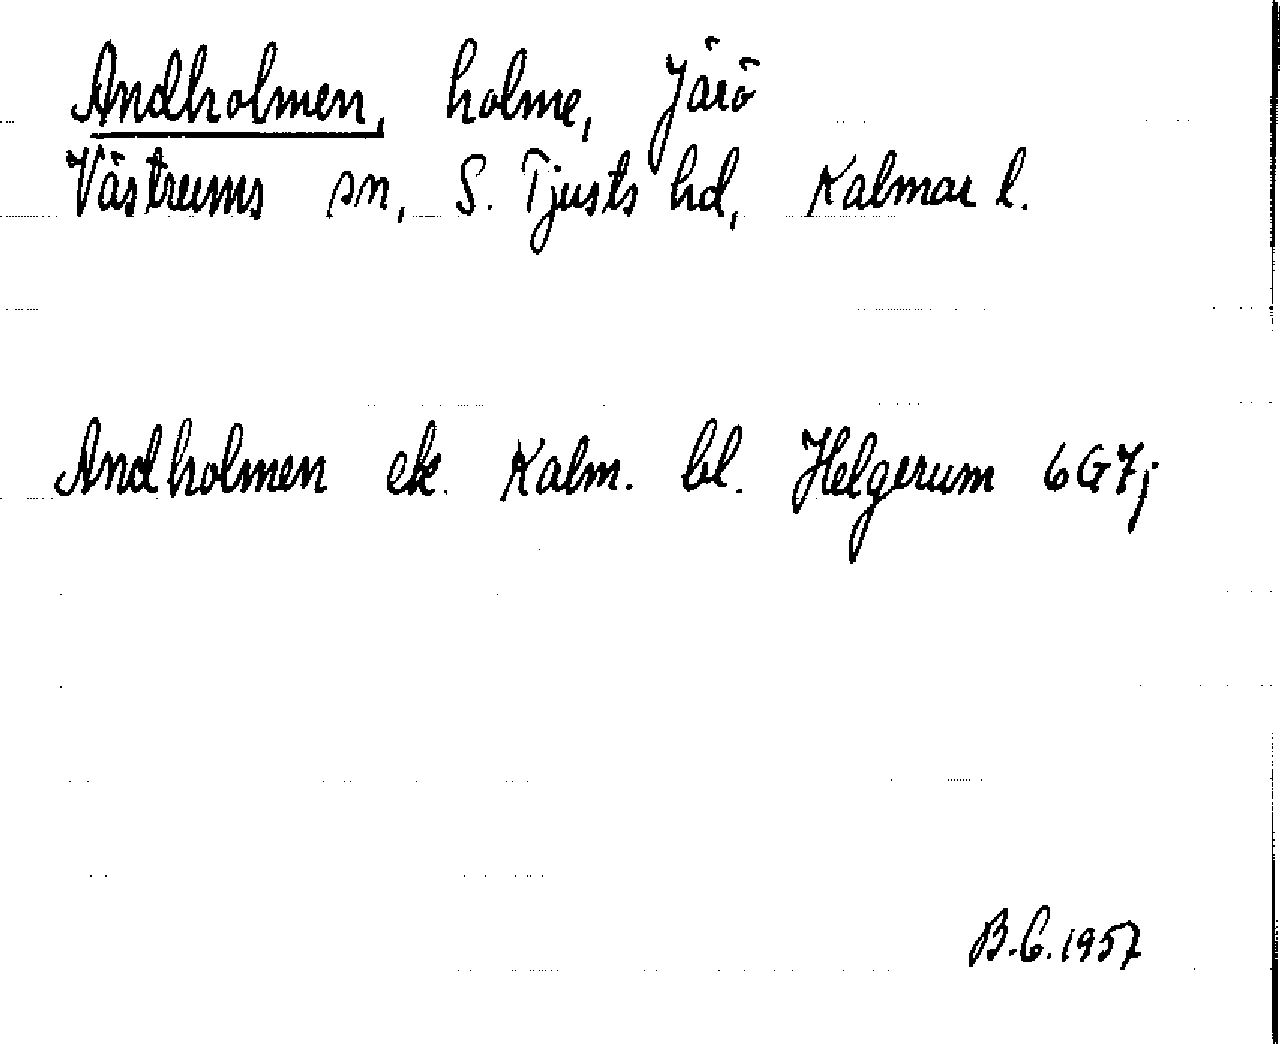 Andholmen, holme, Järö
Västrums sn, S. Tjusts hd, Kalmar l.
Andholmen ek. Kalm. bl. Helgerum 6G7j
B.G.1957